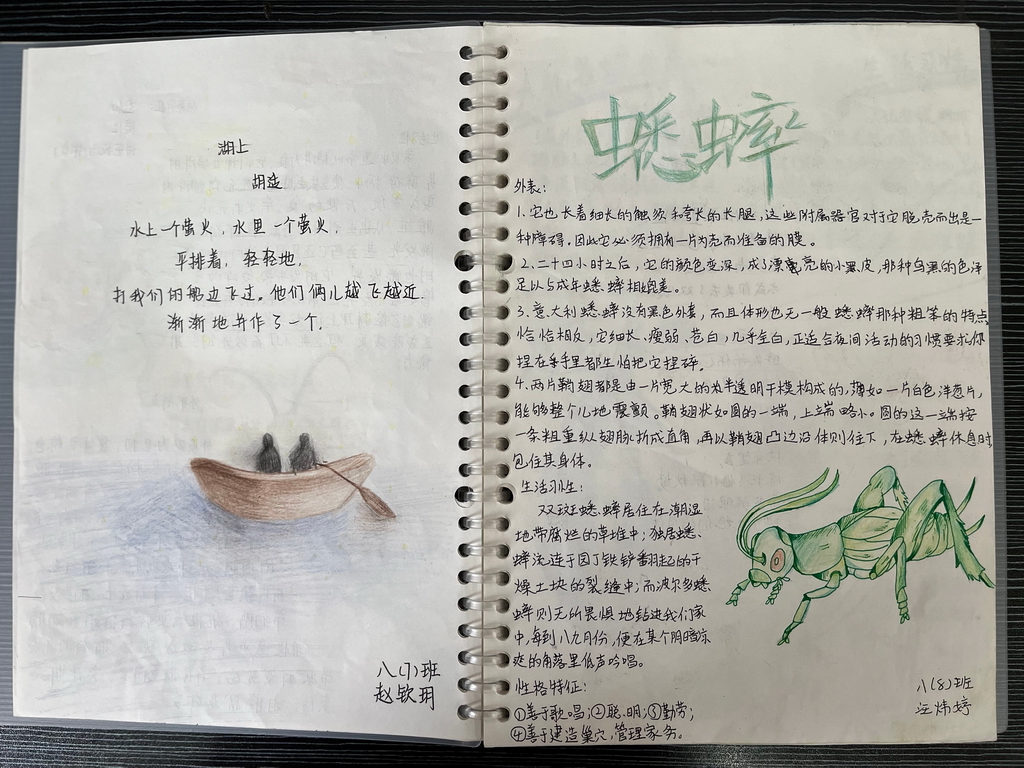 湖上
胡适
水上一个萤火，水里一个萤火，
平排着，轻轻地，
打我们的船边飞过。他们俩儿越飞越近，
渐渐地并作了一个.
八(7)班
赵钦玥
蟋蟀
外表：
1.它也长着细长的触须和夸长的长腿，这些附属器官对于它脱壳而出是一
种障碍.因此它必须拥有一片为壳而准备的膜。
2.二十四小时之后，它的颜色变深，成了漂亮的小黑皮，那种乌黑的色泽
足以与成年蟋蟀相媲美。
3.意大利蟋蟀没有黑色外套，而且体形也无一般蟋蟀那种粗笨的特点
恰恰相反，它细长、瘦弱、苍白，几乎全白，正适合夜间活动的习惯要求你
捏在手里都生怕把它捏碎.
4.两片鞘翅都是由一片宽大的半透明干模构成的，薄如一片白色洋葱片，
能够整个儿地震颤。鞘翅状如圆的一端，上端略小。圆的这一端按
一条粗重纵翅脉折成直角，再以鞘翅凸边沿住则住下，在蟋蟀休息时
包住其身体。
生活习性：
双斑蟋蟀居住在潮湿
地带腐烂的草堆中；独居蟋、
蟀流连于园丁铁铲翻起的干
燥土块的裂缝中；而波尔多蟋
蟀则无所畏惧地钻进我们家
中，每到八九月份，便在某个阴暗凉
爽的角落里低声吟唱。
性格特征：
①善于歌唱；②聪明；③勤劳；
④善于建造巢穴，管理家务。
八(8)班
汪炜婷